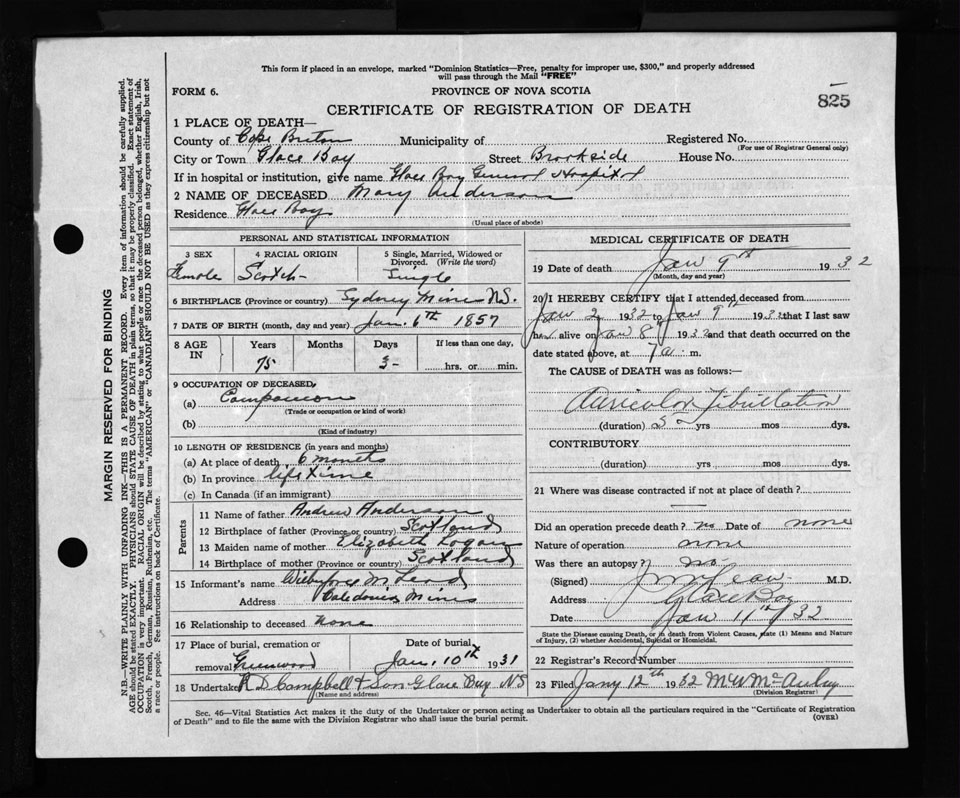 This form if placed in an envelope, marked "Dominion Statistics—Free, penalty for improper use, $300," and properly addressed
will pass through the Mail "FREE"
FORM 6.
PROVINCE OF NOVA SCOTIA
825
CERTIFICATE OF REGISTRATION OF DEATH
1 PLACE OF DEATH—
County of Cape Breton Municipality of Registered No.
(For use of Registrar General only)
City or Town Glace Bay Street Brookside House No.
If in hospital or institution, give name Glace Bay General Hospital
2 NAME OF DECEASED Mary Anderson
Residence Glace Bay
(Usual place of abode)
PERSONAL AND STATISTICAL INFORMATION
3 SEX 4 RACIAL ORIGIN 5 Single, Married, Widowed or
Divorced. (Write the word)
Female Scotch Single
6 BIRTHPLACE (Province or country) Sydney Mines N.S.
7 DATE OF BIRTH (month, day and year) Jan. 6th 1857
8 AGE IN Years Months Days If less than one day,
75 3 - hrs. or min.
9 OCCUPATION OF DECEASED,
(a) Companion
(Trade or occupation or kind of work)
(b)
(Kind of industry)
10 LENGTH OF RESIDENCE (in years and months)
(a) At place of death 6 months
(b) In province lifetime
(c) In Canada (if an immigrant)
Parents
11 Name of father Andrew Anderson
12 Birthplace of father (Province or country) Scotland
13 Maiden name of mother Elizabeth Logan
14 Birthplace of mother (Province or country) Scotland
15 Informant's name McLeod
Address Caledonia Mines
16 Relationship to deceased None
17 Place of burial, cremation or Date of burial,
removal Greenwood Jan. 10th 1931
18 Undertaker R D Campbell & Son Glace Bay NS
(Name and address)
MEDICAL CERTIFICATE OF DEATH
19 Date of death Jan 9th 1932
(Month, day and year)
20 I HEREBY CERTIFY that I attended deceased from
Jan 2 1932 to Jan 9th 1932 that I last saw
her alive on Jan 8th 1932 and that death occurred on
date stated above, at 7 a. m.
The CAUSE of DEATH was as follows:—
Auricular Fibrillation
(duration) yrs mos dys.
CONTRIBUTORY
(duration) yrs mos dys.
21 Where was disease contracted if not at place of death?
Did an operation precede death? no Date of none
Nature of operation none
Was there an autopsy? no
(Signed) M.D.
Address Glace Bay
Date Jan 11th/32
State the Disease causing Death, or in death from Violent Causes, state (1) Means and Nature
of Injury, (2) whether Accidental, Suicidal or Homicidal.
22 Registrar's Record Number
23 Filed Jany 12th 1932 McAulay
(Division Registrar)
Sec. 46—Vital Statistics Act makes it the duty of the Undertaker or person acting as Undertaker to obtain all the particulars required in the "Certificate of Registration
of Death" and to file the same with the Division Registrar who shall issue the burial permit.
(OVER)
MARGIN RESERVED FOR BINDING
N.B.—WRITE PLAINLY WITH UNFADING INK—THIS IS A PERMANENT RECORD. Every item of information should be carefully supplied.
AGE should be stated EXACTLY. PHYSICIANS should STATE CAUSE OF DEATH in plain terms, so that it may be properly classified. Exact statement of
OCCUPATION is very important. RACIAL ORIGIN will be described by stating to what people or race the deceased person belonged, whether English, Irish,
Scotch, French, German, Russian, Ruthenian, etc. The terms "AMERICAN" or "CANADIAN" SHOULD NOT BE USED as they express citizenship but not
a race or people. See instructions on back of Certificate.